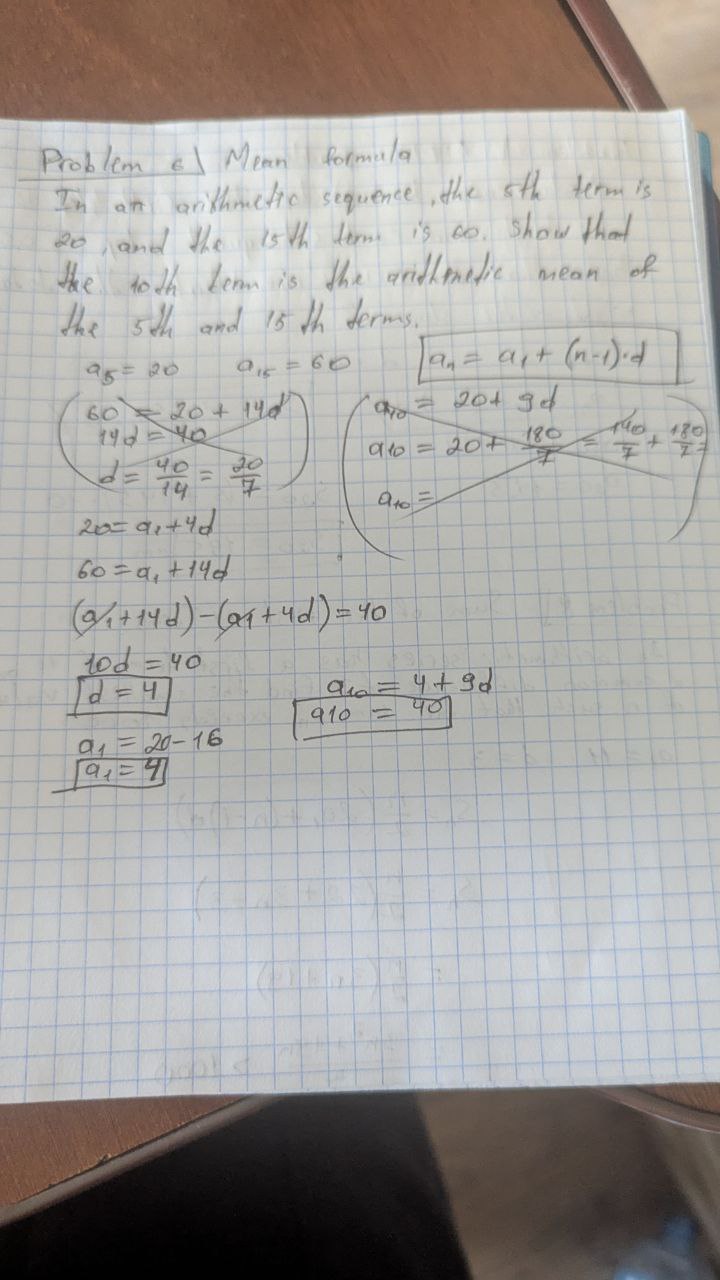 Problem 6) Mean formula
In an arithmetic sequence, the 5th term is
20, and the 15th term is 60. Show that
the 10th term is the arithmetic mean of
the 5th and 15th terms.
a₅ = 20 a₁₅ = 60 aₙ = a₁ + (n-1)·d
60 = 20 + 14d
14d = 40
d = 40/14 = 20/7
a₁₀ = 20 + 9d
a10 = 20 + 180/7 = 140/7 + 180/7 =
a₁₀ =
20 = a₁ + 4d
60 = a₁ + 14d
(a₁ + 14d) - (a₁ + 4d) = 40
10d = 40
d = 4
a₁ = 20 - 16
a₁ = 4
a₁₀ = 4 + 9d
a10 = 40